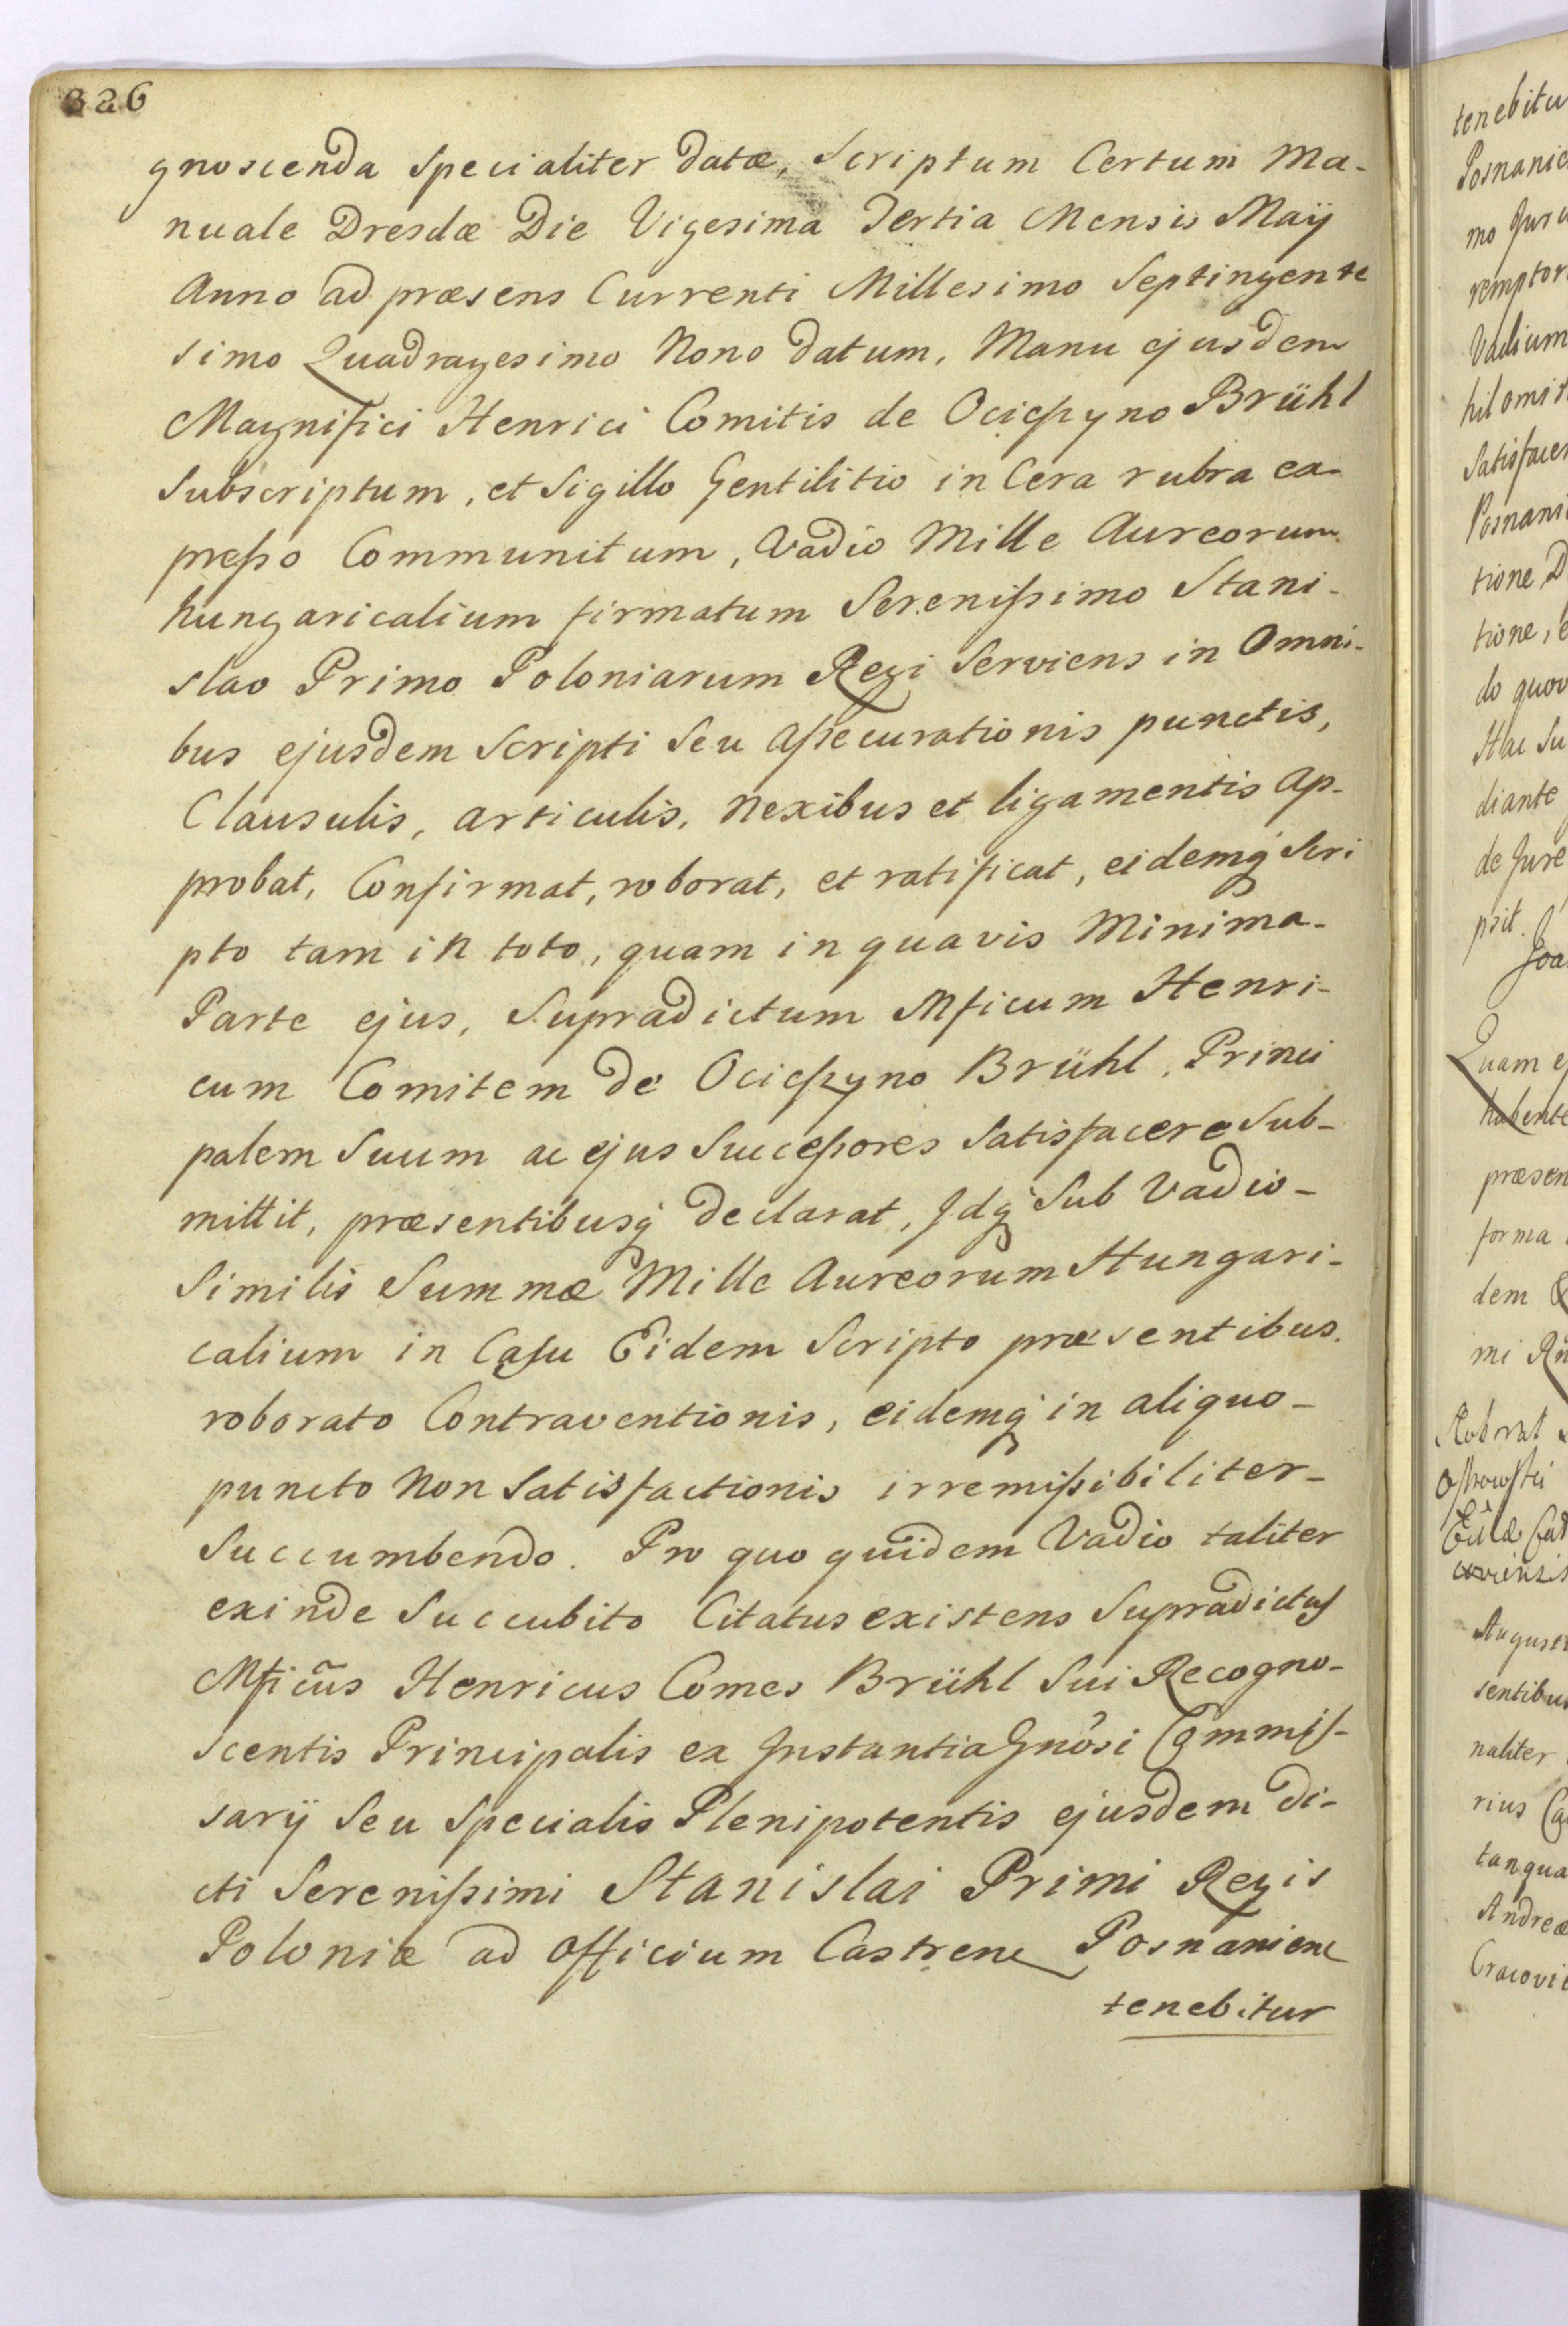 326
gnoscenda Specialiter datæ, Scriptum Certum Ma-
nuale Dresdæ Die Vigesima Tertia Mensis Maij
Anno ad præsens Currenti Millesimo Septingente
simo Quadragesimo Nono datum, Manu ejusdem
Magnifici Henrici Comitis de Ocieszyno Brühl
Subscriptum, et Sigillo Gentilitio in Cera rubra ex-
presso Communitum, Vadio Mille Aureorum
hungaricalium firmatum Serenissimo Stani-
slao Primo Poloniarum Regi Serviens in Omni-
bus ejusdem Scripti Seu Assecurationis punctis,
Clausulis, articulis, Nexibus et ligamentis ap-
probat, Confirmat, roborat, et ratificat, eidemq́ Scri
pto tam in toto, quam in quavis Minima-
Parte ejus, Supradictum Mficum Henri-
cum Comitem de Ocieszyno Brühl, Princi
palem Suum ac ejus Successores Satisfacere Sub-
mittit, præsentibusq́ declarat, Jdq́ Sub Vadio-
Similis Summæ Mille Aureorum Hungari-
calium in Casu Eidem Scripto præsentibus
roborato Contraventionis, eidemq́ in aliquo-
puncto Non Satisfactionis irremissibiliter-
Succumbendo. Pro quo quidem Vadio taliter
exinde Succubito Citatus existens Supradictus
Mficũs Henricus Comes Brühl Sui Recogno-
scentis Principalis ex Jnstantia Gnôsi Commis-
sarij Seu Specialis Plenipotentis ejusdem di-
cti Serenissimi Stanislai Primi Regis
Poloniæ ad Officium Castrene Posnaniene
tenebitur
tenebitu
Posnanie
mo Juri
remptor
Vadium
hilomin
Satisfacer
Posnani
tione D
tione, e
do quov
Hac Su
diante
de Jure
psit.
Joa
Quam e
habente
præsen
forma
dem
mi
Roborat
August
sentibus
naliter
rius Ca
tanqua
Andreæ
Cracovie